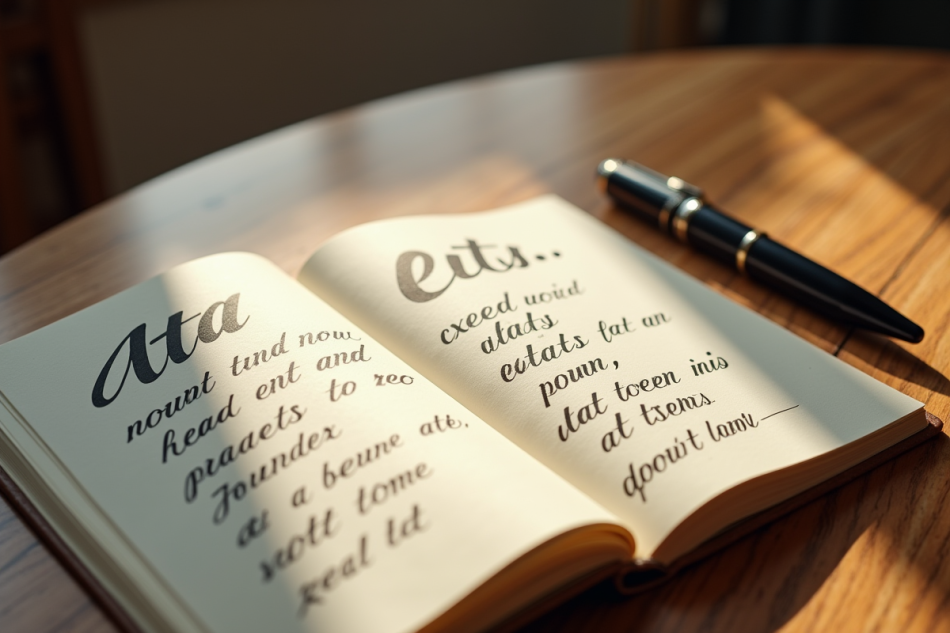 Ata
nount tund now
head ent and
pradets to reo
Jounder
at a beune ate.
scott tome
real ld
Eeits..
cxeed uoiud
atads
eotats fat an
poun,
dat toeen inis
at tsems
dpoir't lomt